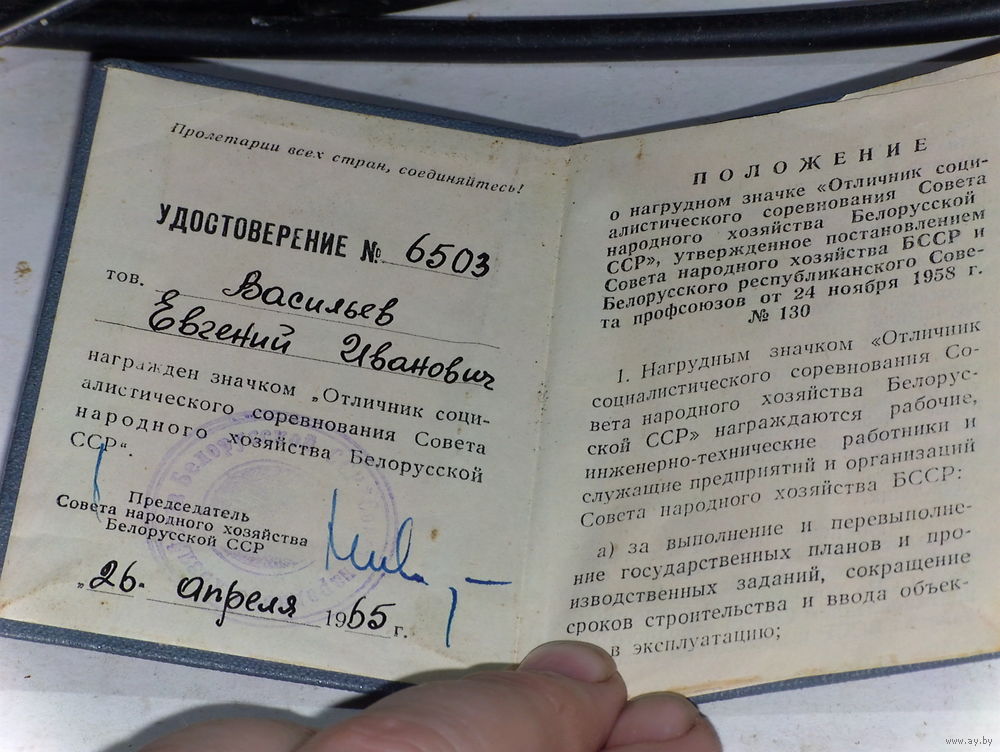 Пролетарии всех стран, соединяйтесь!
УДОСТОВЕРЕНИЕ № 6503
тов. Васильев
Евгений Иванович
награжден значком „Отличник соци-
алистического соревнования Совета
народного хозяйства Белорусской
ССР“.
Председатель
Совета народного хозяйства
Белорусской ССР
„26. апреля 1965 г.
ПОЛОЖЕНИЕ
о нагрудном значке «Отличник соци-
алистического соревнования Совета
народного хозяйства Белорусской
ССР», утвержденное постановлением
Совета народного хозяйства БССР и
Белорусского республиканского Сове-
та профсоюзов от 24 ноября 1958 г.
№ 130
1. Нагрудным значком «Отличник
социалистического соревнования Со-
вета народного хозяйства Белорус-
ской ССР» награждаются рабочие,
инженерно-технические работники и
служащие предприятий и организаций
Совета народного хозяйства БССР:
а) за выполнение и перевыполне-
ние государственных планов и про-
изводственных заданий, сокращение
сроков строительства и ввода объек-
в эксплуатацию;
www.ay.by